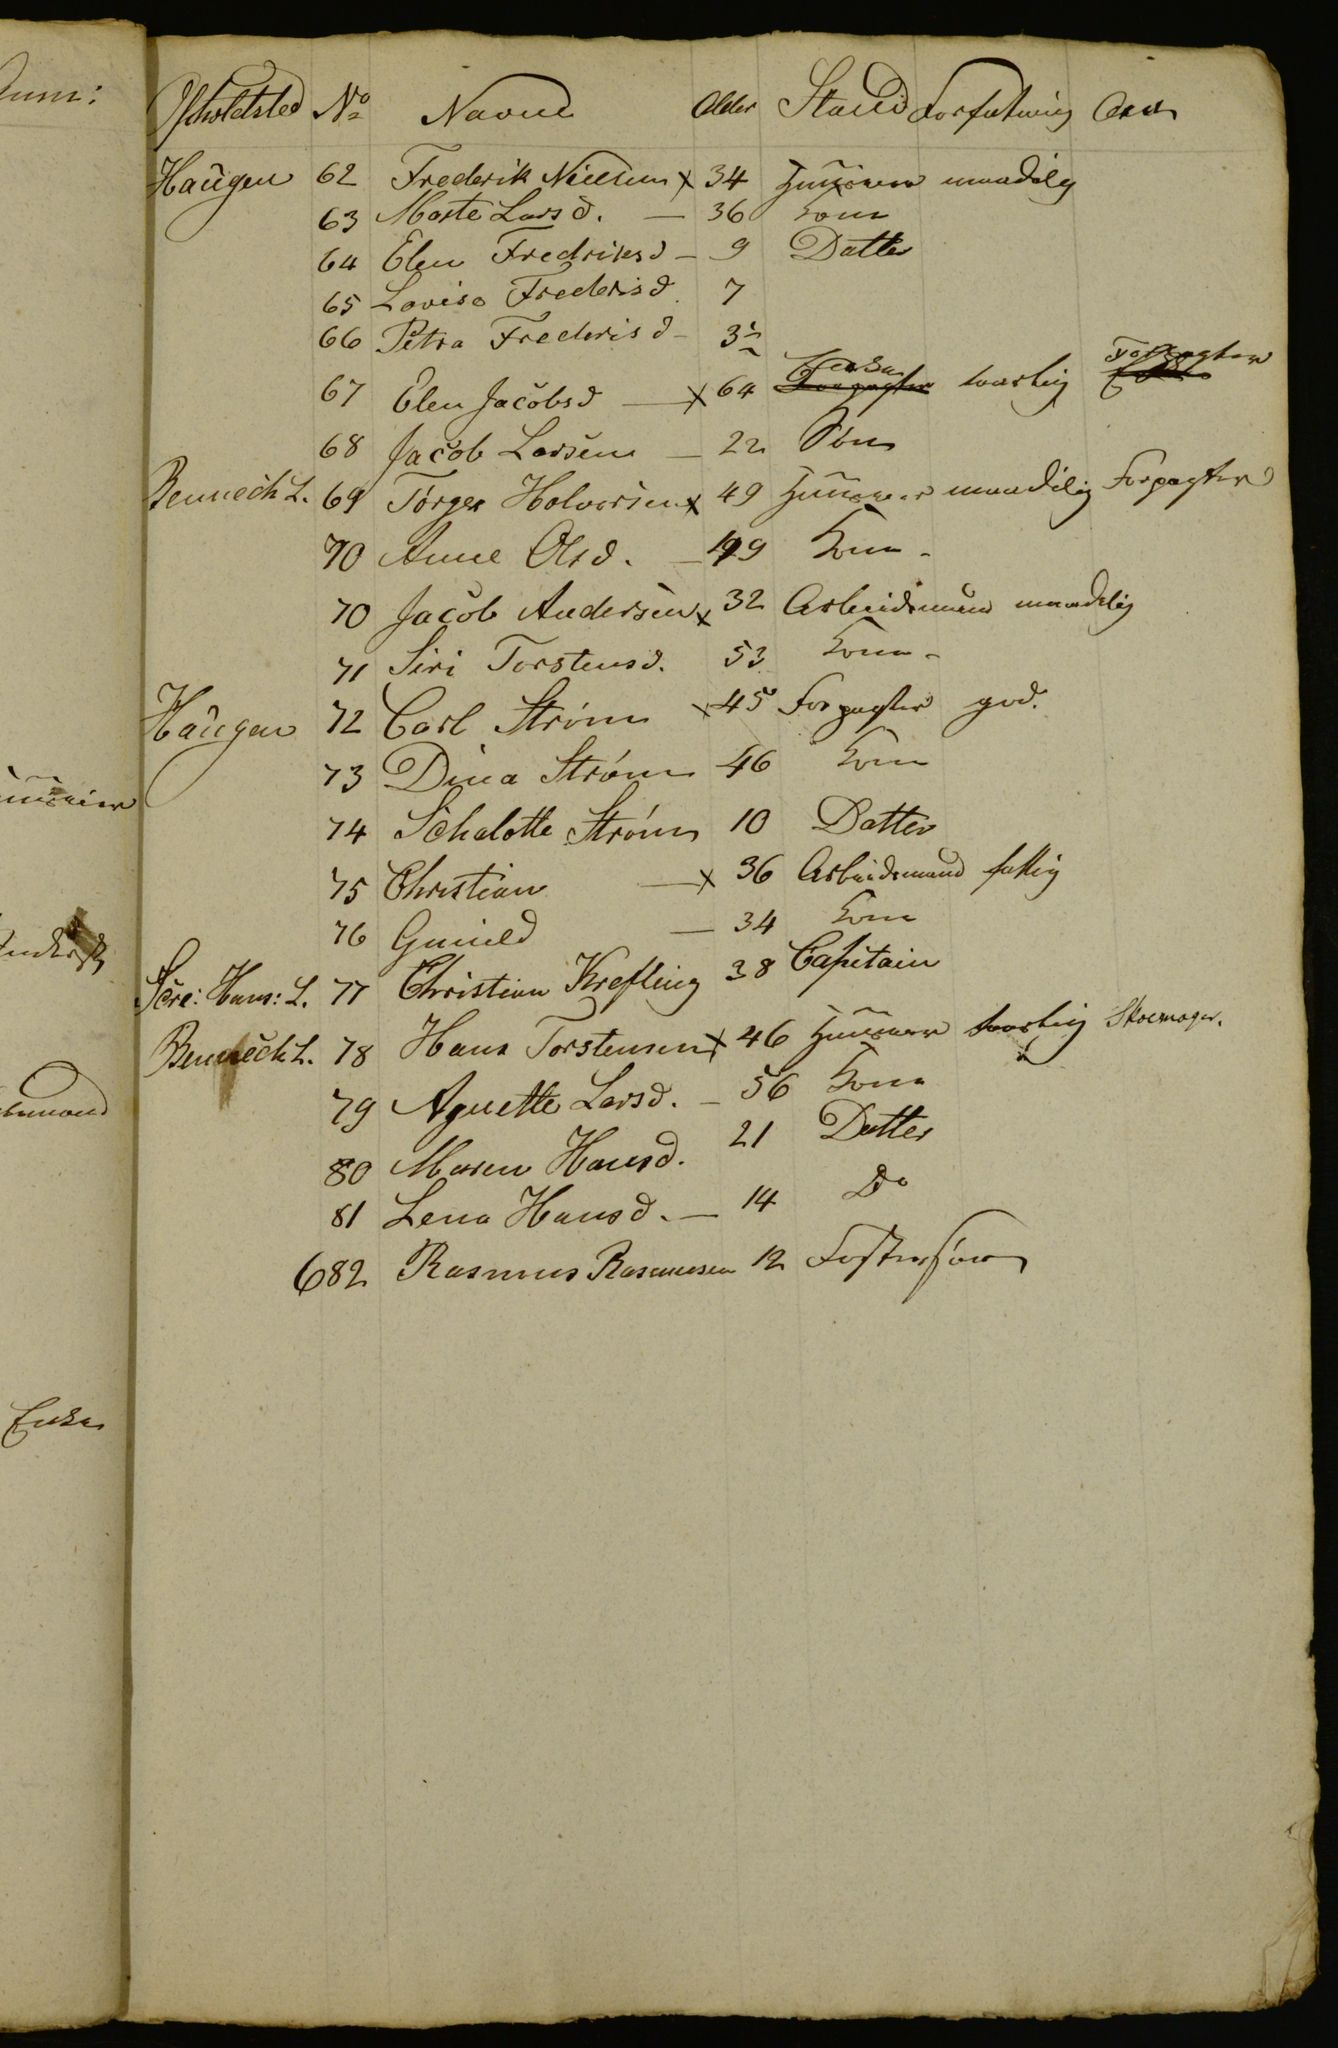 Opholdsted No Navne Alder Stand Forfatning Anm
Haugen 62 Frederik Nielsen x 34 Huusmand maadelig
63 Marte Larsd. — 36 Kone
64 Elen Fredriksd — 9 Datter
65 Lovise Frederisd 7
66 Petra Frederisd — 3½
67 Elen Jacobsd — x 64 Enke Forpagter taarlig Forpagter Enke
68 Jacob Larsen — 22 Søn
Bennech L. 69 Torger Halvorsen x 49 Huusmand maadelig Forpagter
70 Anne Olsd. — 49 Kone -
70 Jacob Andersen x 32 Arbeidsmand maadelig
71 Siri Torstensd. 53 Kone -
Haugen 72 Carl Strøm x 45 Forpagter god.
73 Dina Strøm 46 Kone
74 Schalotte Strøm 10 Datter
75 Christian — x 36 Arbeidsmand fattig
76 Gunild — 34 Kone
Hans: L. 77 Christian Krefting 38 Capitain
Bennech L. 78 Hans Torstensen x 46 Huusmand taarlig Skoemager.
79 Agnette Larsd. — 56 Kone
80 Maren Hansd. 21 Datter
81 Lena Hansd. — 14 Do
682 Rasmus Rasmusen 12 Fostersøn
Enke